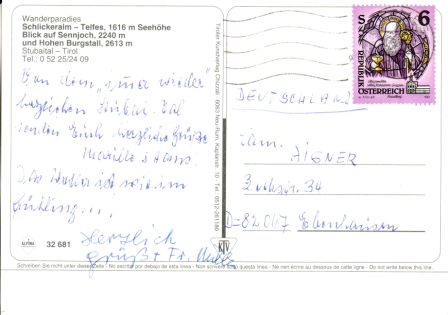 Wanderparadies
Schlickeralm – Telfes, 1616 m Seehöhe
Blick auf Sennjoch, 2240 m
und Hohen Burgstall, 2613 m
Stubaital – Tirol
Tel.: 0 52 25/24 09
Von dem „immer wieder"
herzlichen
senden Euch herzliche Grüße
Das Wetter ist wie im
Frühling...!
Herzlich
grüßt Fr.
ALPINA 32 681
Tiroler Kunstverlag Chizzali · 6063 Neu-Rum, Kaplanstr. 10 · Tel. 0512-261180
KTV
S 6
REPUBLIK
ÖSTERREICH
DEUTSCHLAND
Fam.
AIGNER
34
D-82067 Ebenhausen
Schreiben Sie nicht unter dieser Zeile - No escribir por debajo de esta línea - Non scrivere sotto questa linea - Ne rien écrire au dessous de cette ligne - Do not write below this line